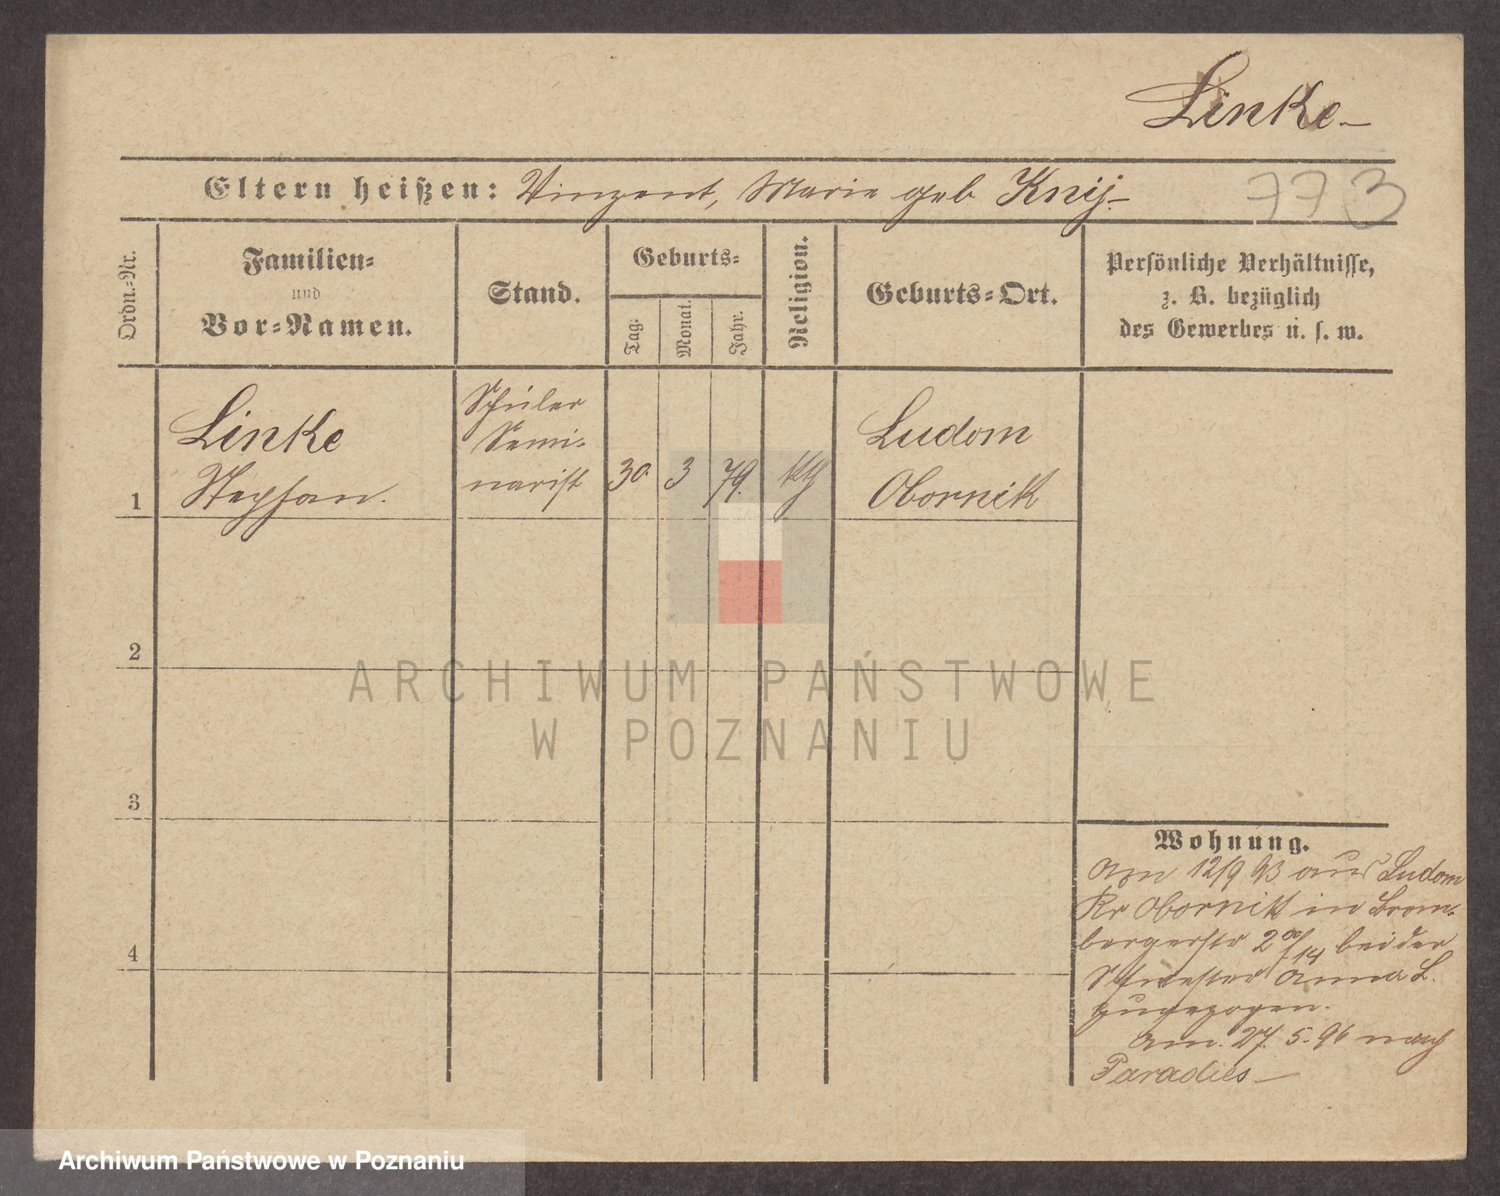 Linke
Eltern heißen: Vinzent, Marie geb. Knij
773
Ordn.-Nr.
Familien-
und
Vor-Namen.
Stand.
Geburts-
Tag.
Monat.
Jahr.
Religion.
Geburts-Ort.
Persönliche Verhältnisse,
z. B. bezüglich
des Gewerbes u. s. w.
1
Linke
Stephan.
Schüler
Semi-
narist
30. 3 79. kth
Ludom
Obornik
2
3
4
ARCHIWUM PAŃSTWOWE
W POZNANIU
Wohnung.
Am 12/9 93 aus Ludom
Kr Obornik in Brom-
bergerstr 2 bei der
Schwester Anna L.
zugezogen.
Am. 27. 5. 96 nach
Paradies
Archiwum Państwowe w Poznaniu